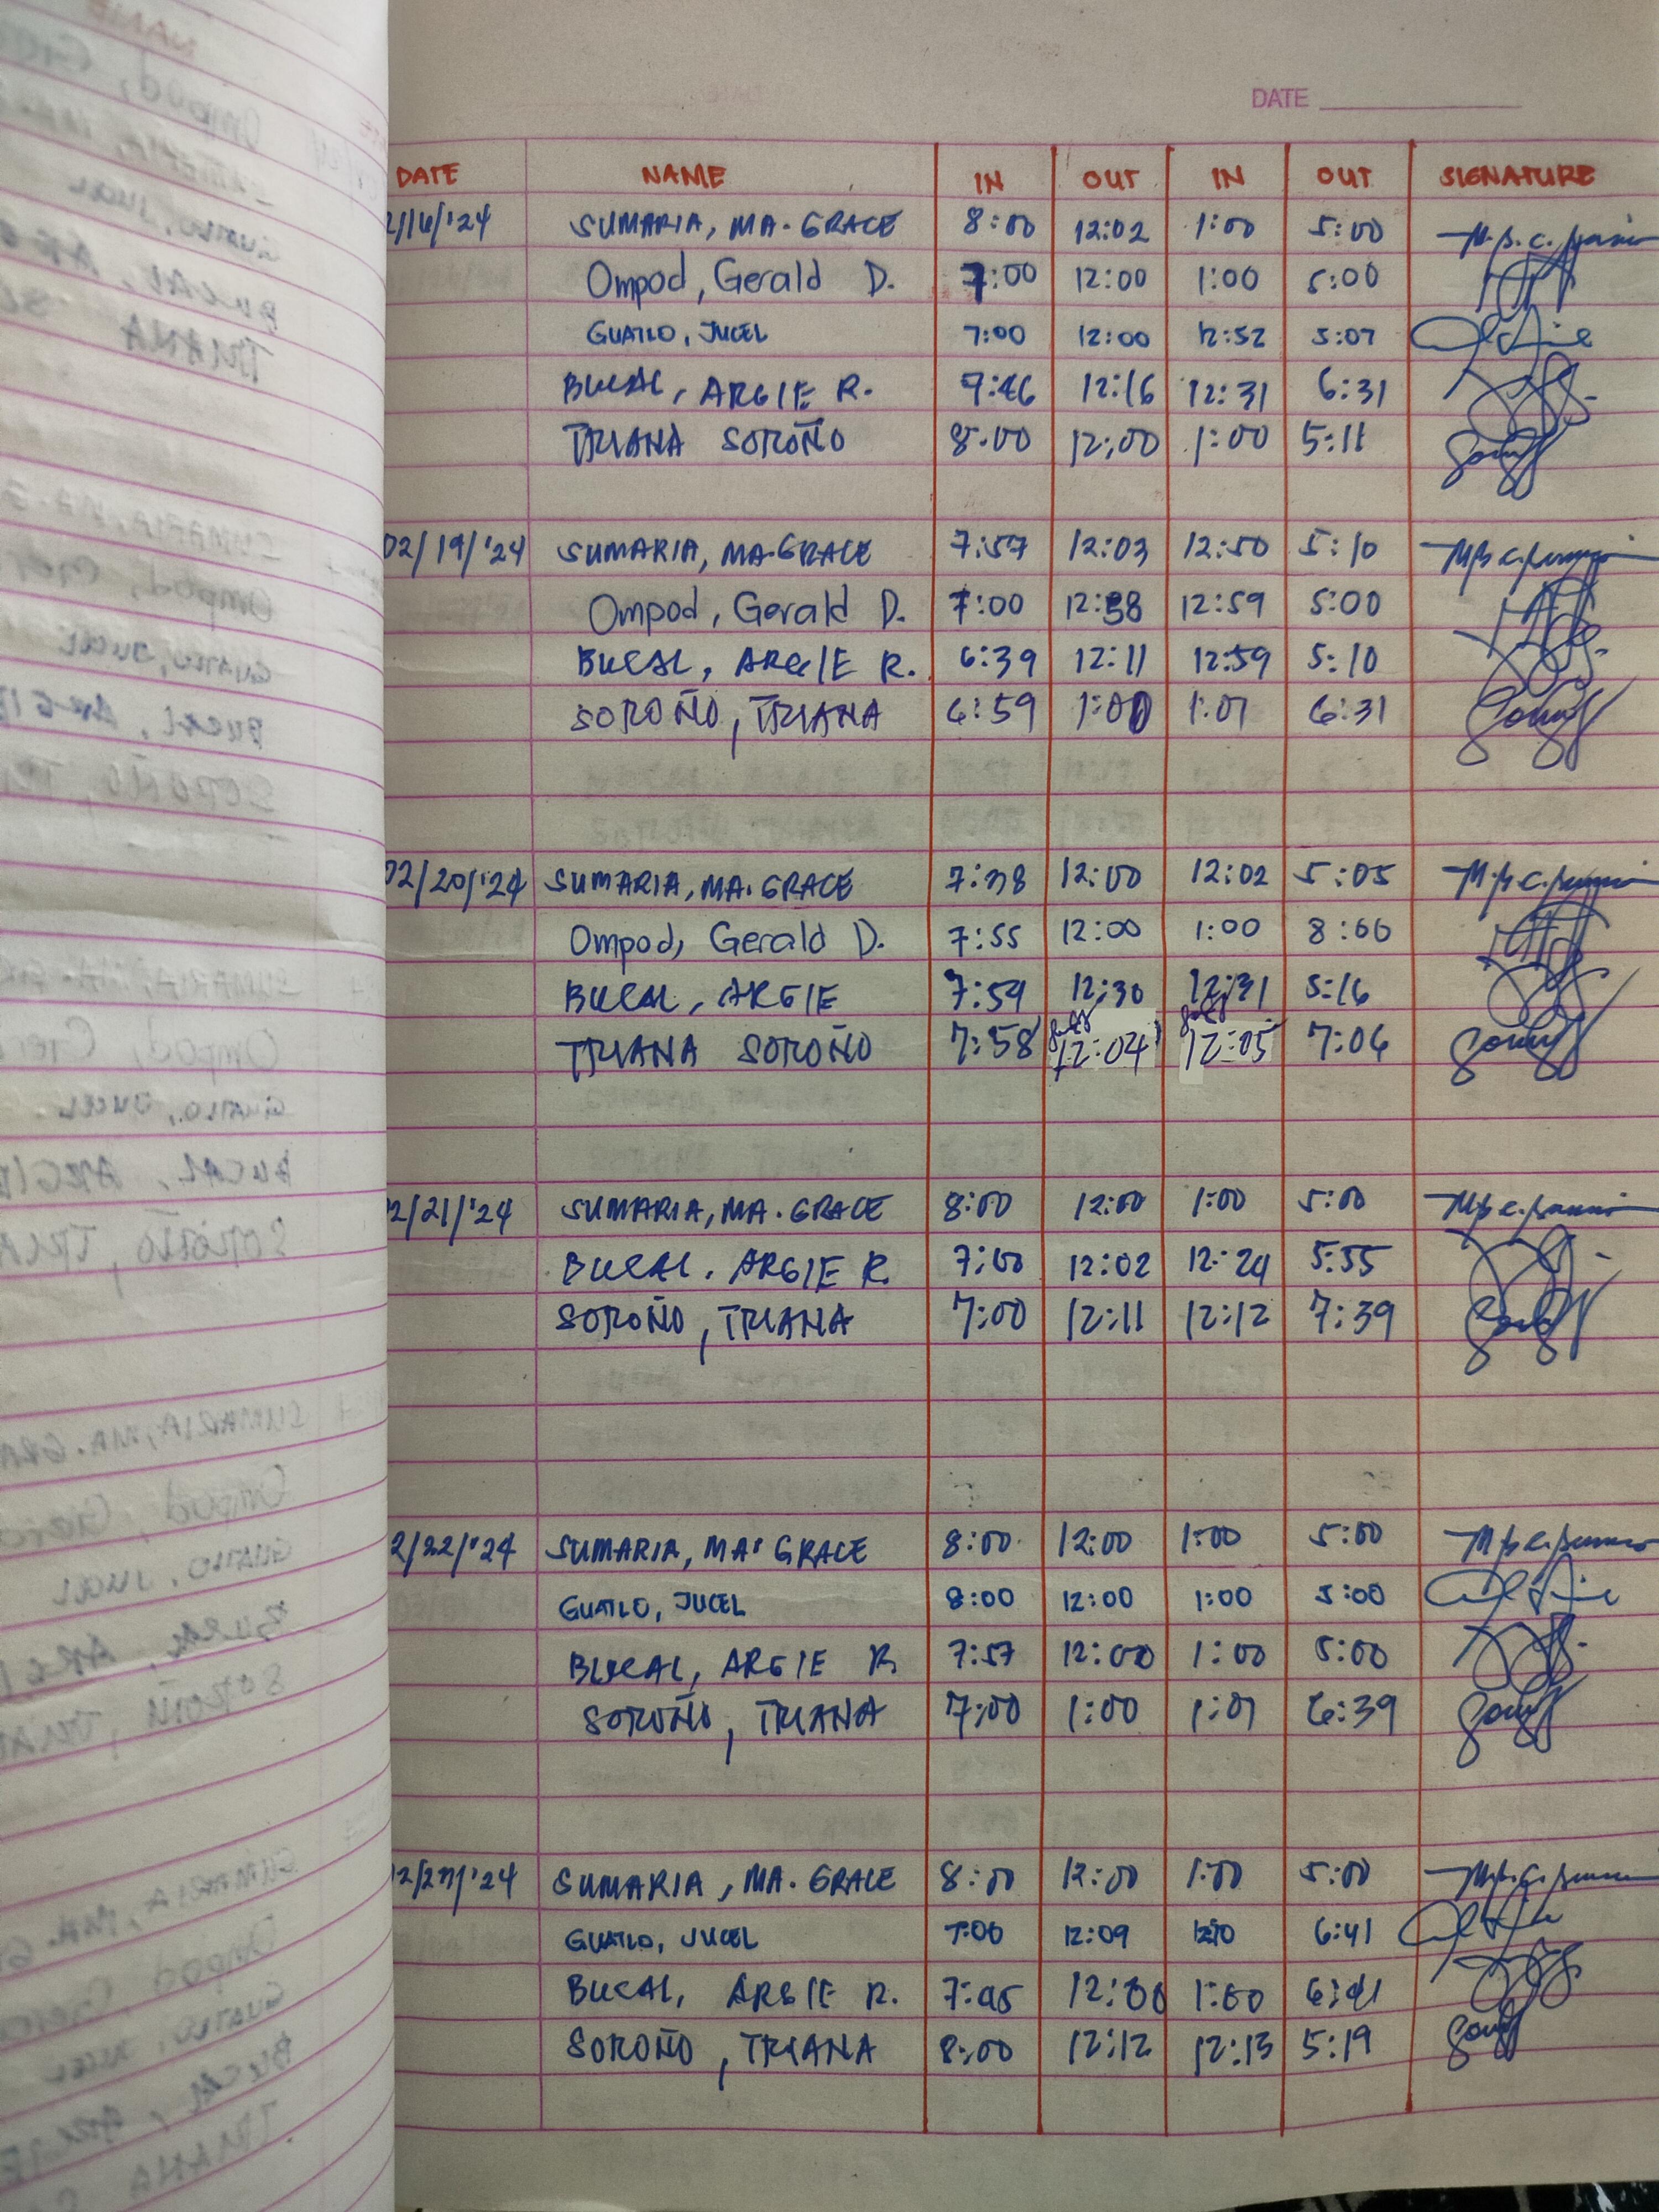 DATE
DATE NAME IN OUT IN OUT SIGNATURE
2/16/'24 SUMARIA, MA. GRACE 8:00 12:02 1:00 5:00
Ompod, Gerald D. 7:00 12:00 1:00 5:00
GUATLO, JUCEL 7:00 12:00 12:52 5:07
BUCAL, ARGIE R. 7:46 12:16 12:31 6:31
TRIANA SOROÑO 8:00 12:00 1:00 5:11
02/19/'24 SUMARIA, MA. GRACE 7:57 12:03 12:50 5:10
Ompod, Gerald D. 7:00 12:58 12:59 5:00
BUCAL, ARGIE R. 6:39 12:11 12:59 5:10
SOROÑO, TRIANA 6:59 1:00 1:01 6:31
02/20/'24 SUMARIA, MA. GRACE 7:38 12:00 12:02 5:05
Ompod, Gerald D. 7:55 12:00 1:00 8:00
BUCAL, ARGIE 7:59 12:30 12:31 5:16
TRIANA SOROÑO 7:58 12:04 12:05 7:06
2/21/'24 SUMARIA, MA. GRACE 8:00 12:00 1:00 5:00
BUCAL, ARGIE R. 7:00 12:02 12:24 5:55
SOROÑO, TRIANA 7:00 12:11 12:12 7:39
2/22/'24 SUMARIA, MA. GRACE 8:00 12:00 1:00 5:00
GUATLO, JUCEL 8:00 12:00 1:00 5:00
BUCAL, ARGIE R 7:57 12:00 1:00 5:00
SOROÑO, TRIANA 7:00 1:00 1:01 6:39
SUMARIA, MA. GRACE 8:00 12:00 1:00 5:00
GUATLO, JUCEL 7:00 12:09 12:10 6:41
BUCAL, ARGIE R. 7:45 12:00 1:00 6:41
SOROÑO, TRIANA 8:00 12:12 12:13 5:19